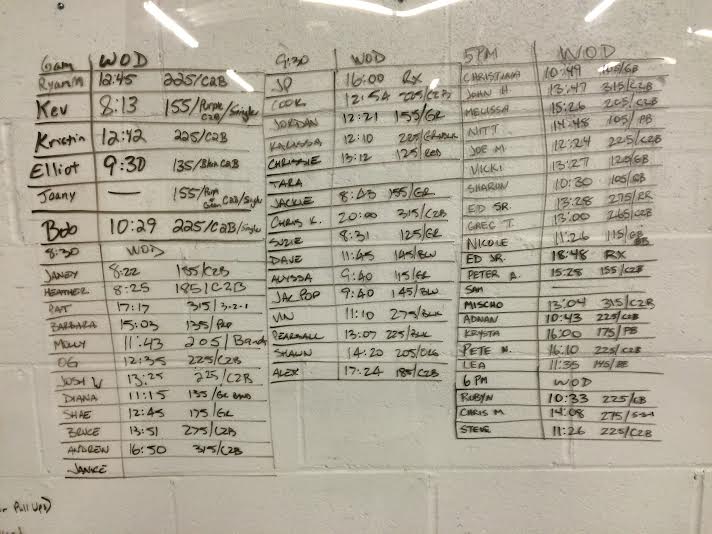 6am WOD
Ryann 12:45 225/C2B
Kev 8:13 155/Purple C2B/Singles
Kristin 12:42 225/C2B
Elliot 9:30 135/Blk C2B
Joany — 155/Purp C2B/Singles
Bob 10:29 225/C2B/Singles
8:30 WOD
JANEY 8:22 155/C2B
HEATHER 8:25 185/C2B
PAT 17:17 315/3-2-1
BARBARA 15:03 135/PRP
MOLLY 11:43 205/Bands
OG 12:35 225/C2B
JOSH V 13:25 225/C2B
DIANA 11:15 135/GR BAND
SHAE 12:45 175/GR
BRUCE 13:51 275/C2B
ANDREW 16:50 315/C2B
JANICE
9:30 WOD
JP 16:00 RX
COOK 12:54 225/C2B
JORDAN 12:21 155/GR
KARISSA 12:10 225/GR+BLK
CHRISSIE 13:12 125/RED
TARA
JACKIE 8:43 155/GR
CHRIS K. 20:00 315/C2B
SUZIE 8:31 125/GR
DAVE 11:45 145/BLU
ALYSSA 9:40 115/GR
JAX POP 9:40 145/BLU
VIN 11:10 275/BLK
PEARSALL 13:07 225/BLK
SHAUN 14:20 205/ORG
ALEX 17:24 185/C2B
5PM WOD
CHRISTIANA 10:49 105/GB
JOHN H 13:47 315/C2B
MELISSA 15:26 205/C2B
NITT 14:48 105/PB
JOE M 12:24 225/C2B
VICKI 13:27 120/GB
SHARON 10:30 105/RB
ED SR. 13:28 275/RR
GREG T. 13:00 265/C2B
NICOLE 11:26 115/GB
ED JR. 18:48 RX
PETER A. 15:28 155/C2B
SAM —
MISCHO 13:04 315/C2B
ADNAN 10:43 225/C2B
KRYSTA 16:00 175/PB
PETE N. 16:10 225/C2B
LEA 11:35 145/BB
6PM WOD
ROBYN 10:33 225/GB
CHRIS M 14:08 275/5-3-1
STEVE 11:26 225/C2B
Pull Ups)